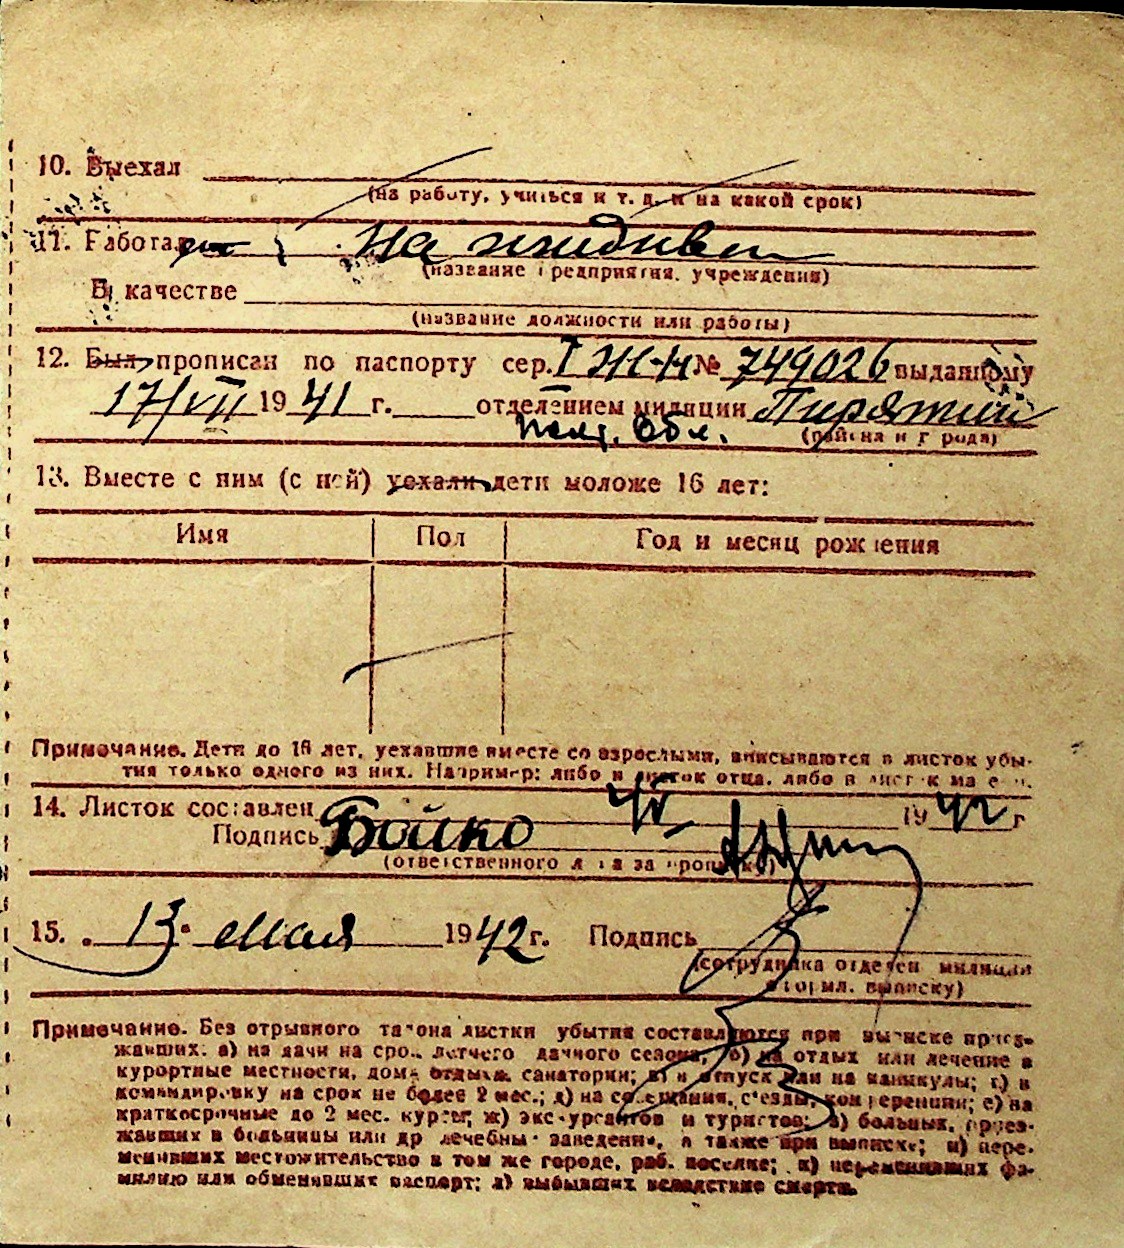 10. Выехал
(на работу, учиться и т. д. и на какой срок)
11. Работает На иждивен
(название предприятия, учреждения)
В качестве
(название должности или работы)
12. Был прописан по паспорту сер. I ЖН № 749026 выданному
17/VII 1941 г. отделением милиции Пирятин
Полт. Обл.
(района и города)
13. Вместе с ним (с ней) уехали дети моложе 16 лет:
Имя Пол Год и месяц рождения
Примечание. Дети до 16 лет, уехавшие вместе со взрослыми, вписываются в листок убы-
тия только одного из них. Например: либо в листок отца, либо в листок матери.
14. Листок составлен 1942 г
Подпись Бойко
(ответственного лица за прописку)
15. 13 мая 1942 г. Подпись
(сотрудника отделен. милиции
оформл. выписку)
Примечание. Без отрывного талона листки убытия составляются при выписке приез-
жавших: а) на дачи на срок летнего дачного сезона, б) на отдых или лечение в
курортные местности, дома отдыха, санатории; в) в отпуск или на каникулы; г) в
командировку на срок не более 2 мес.; д) на совещания, съезды, конференции; е) на
краткосрочные до 2 мес. курсы; ж) экскурсантов и туристов; з) больных, приез-
жавших в больницы или др лечебны заведения, а также при выписке; и) пере-
менивших местожительство в том же городе, раб. поселке; к) переменивших фа-
милию или обменивших паспорт; л) выбывших вследствие смерти.